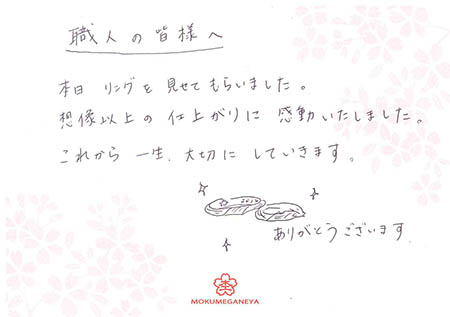 職人の皆様へ
本日 リングを 見せてもらいました。
想像以上の 仕上がりに 感動いたしました。
これから 一生、大切に していきます。
ありがとうございます
MOKUMEGANEYA